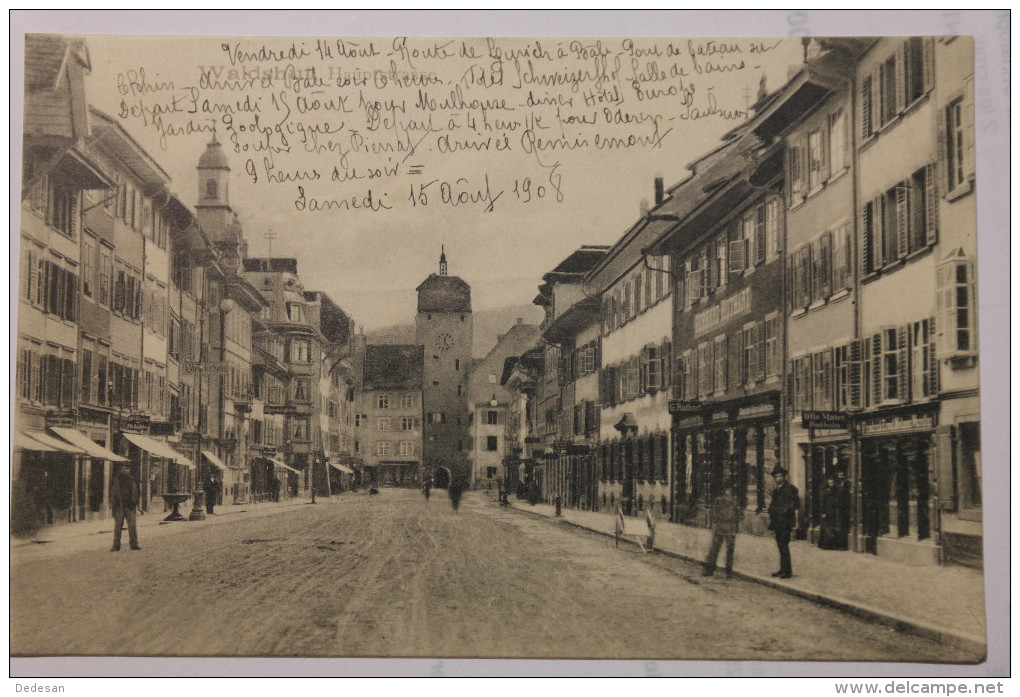 Vendredi 14 Août - Route de Zurich à Bâle - Pont de bateau sur
Waldshut, Hauptstrasse.
le Rhin - arrivé à Bâle soir 6 heures - Hôtel Schweizerhof salle de bains -
Départ Samedi 15 Août pour Mulhouse - diner Hôtel Europe
Jardin Zoologique - Départ à 4 heures pour Oderen -
Souper chez Pierrat - arrivée Remiremont
9 heures du soir =
Samedi 15 Août 1908
G. Rathart
Otto Maier
Dedesan
www.delcampe.net